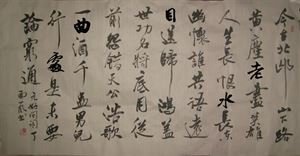 今古北邙山下路
黄塵老盡英雄
人生長恨水長東
幽懷誰共語遠
目送歸鴻蓋
世功名將底用從
前錯怨天公浩歌
一曲酒千盅男兒
行處是未要
論窮通 元好问詞